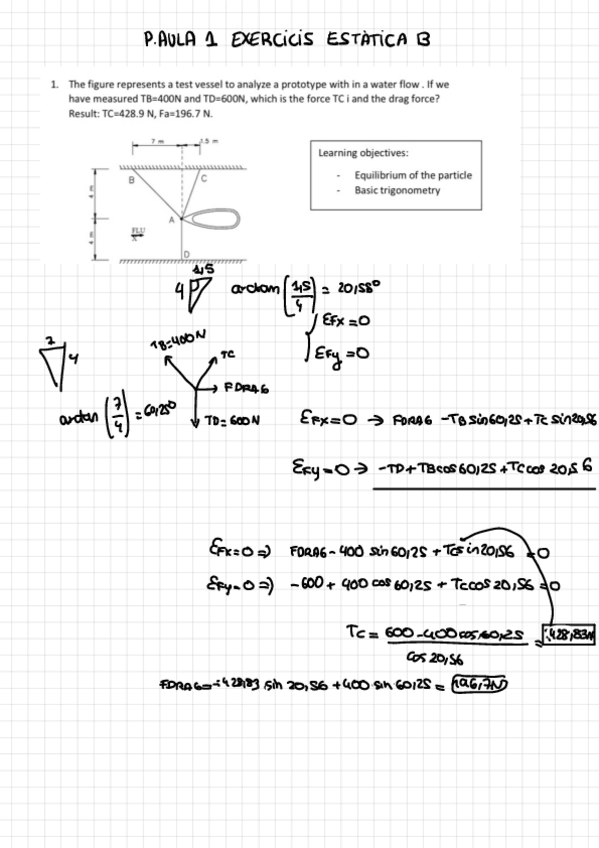 P.AULA 1 EXERCICIS ESTÀTICA B
1. The figure represents a test vessel to analyze a prototype with in a water flow . If we
have measured TB=400N and TD=600N, which is the force TC i and the drag force?
Result: TC=428.9 N, Fa=196.7 N.
7 m
1.5 m
Learning objectives:
- Equilibrium of the particle
- Basic trigonometry
B
C
4 m
A
4 m
D
1,5
4
arctan (1,5/4) = 20,58°
ΣFx=0
ΣFy=0
7
4
TB=400N
TC
FDRAG
TD=600N
arctan (7/4) = 60,25°
ΣFx=0 → FDRAG -TB sin60,25+Tc sin20,56
ΣFy=0 → -TD+TBcos 60,25+TCcos 20,56
ΣFx=0 => FDRAG-400 sin60,25+Tcsin20,56=0
ΣFy=0 => -600+400 cos60,25+Tccos20,56=0
Tc = 600-400cos60,25 / cos 20,56 = 428,83N
FDRAG=-428,83 sin 20,56 +400 sin 60,25 = 196,7N